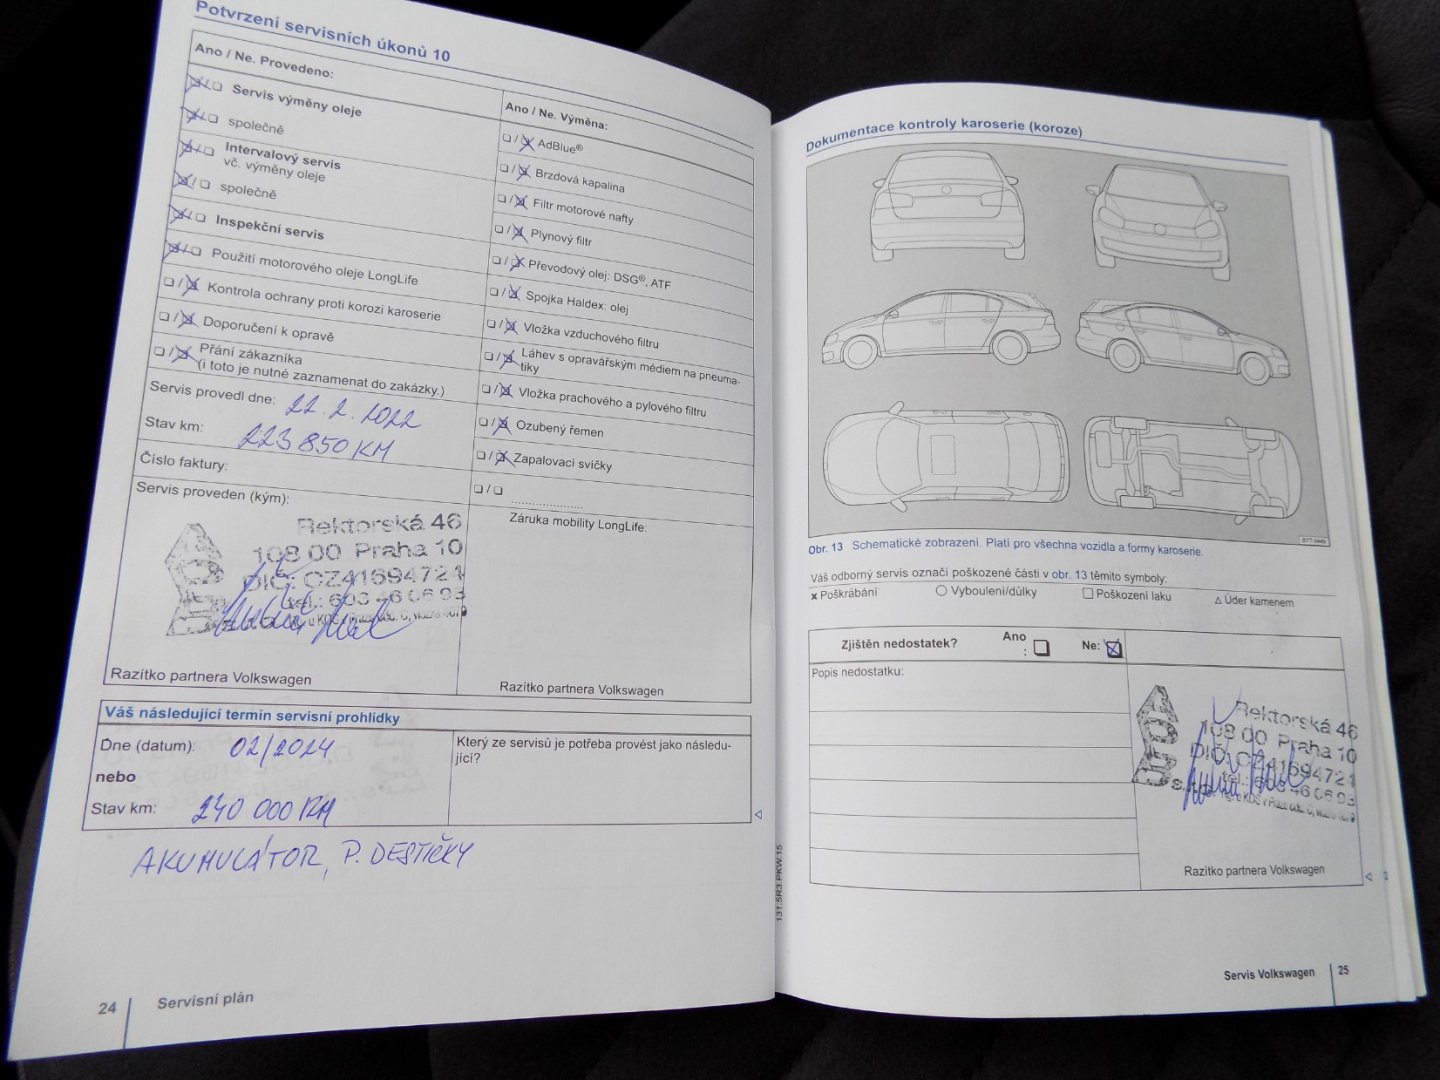 Potvrzení servisních úkonů 10
Ano / Ne. Provedeno:
Servis výměny oleje
společně
Intervalový servis
vč. výměny oleje
společně
Inspekční servis
Použití motorového oleje LongLife
Kontrola ochrany proti korozi karoserie
Doporučení k opravě
Přání zákazníka
(i toto je nutné zaznamenat do zakázky.)
Servis provedl dne: 22.2.2022
Stav km: 223 850 KM
Číslo faktury:
Servis proveden (kým):
Rektorská 46
108 00 Praha 10
DIČ: CZ41694721
tel.: 603 46 06 93
Razítko partnera Volkswagen
Ano / Ne. Výměna:
AdBlue®
Brzdová kapalina
Filtr motorové nafty
Plynový filtr
Převodový olej: DSG®, ATF
Spojka Haldex: olej
Vložka vzduchového filtru
Láhev s opravářským médiem na pneuma-
tiky
Vložka prachového a pylového filtru
Ozubený řemen
Zapalovací svíčky
Záruka mobility LongLife:
Razítko partnera Volkswagen
Váš následující termín servisní prohlídky
Dne (datum): 02/2024
nebo
Stav km: 240 000 KM
Který ze servisů je potřeba provést jako následu-
jící?
AKUMULÁTOR, P. DESTIČKY
24 Servisní plán
131.5R3.PKW.15
Dokumentace kontroly karoserie (koroze)
Obr. 13 Schematické zobrazení. Platí pro všechna vozidla a formy karoserie.
Váš odborný servis označí poškozené části v obr. 13 těmito symboly:
x Poškrábání ○ Vyboulení/důlky □ Poškození laku △ Úder kamenem
Zjištěn nedostatek? Ano
: Ne:
Popis nedostatku:
Rektorská 46
108 00 Praha 10
DIČ: CZ41694721
tel.: 603 46 06 93
Razítko partnera Volkswagen
Servis Volkswagen 25